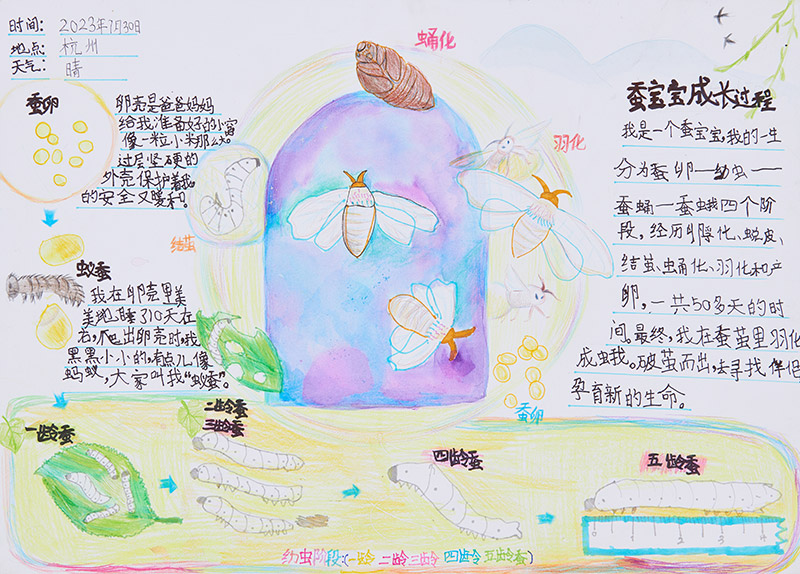 时间：2023年7月30日
地点：杭州
天气：晴
蚕卵
卵壳是爸爸妈妈
给我准备好的小窝
像一粒小米那么大。
过层坚硬的
外壳保护着我
的安全又暖和。
结茧
蛹化
羽化
蚁蚕
我在卵壳里美
美地睡了10天左
右，爬出卵壳时，我
黑黑小小的，有点儿像
蚂蚁，大家叫我“蚁蚕”。
蚕宝宝成长过程
我是一个蚕宝宝，我的一生
分为蚕卵—幼虫—
蚕蛹—蚕蛾四个阶
段，经历孵化、蜕皮、
结茧、蛹化、羽化和产
卵，一共50多天的时
间。最终，我在蚕茧里羽化
成虫我。破茧而出，去寻找伴侣
孕育新的生命。
蚕卵
一龄蚕
二龄蚕
三龄蚕
四龄蚕
五龄蚕
0 1 2 3 4 5
幼虫阶段：（一龄 二龄 三龄 四龄 五龄蚕）